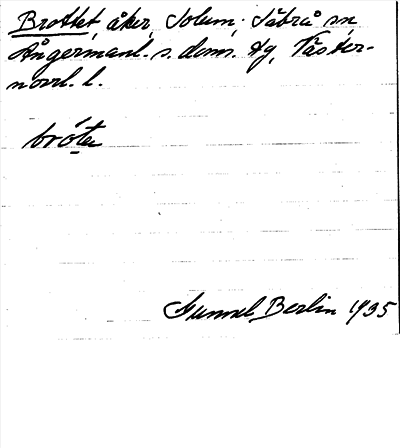 Brottet, åker, Solum, Säbrå sn,
Ångermanl. s. doms. tg, Väster-
norrl. l.
bróte
Gunnel Berlin 1935